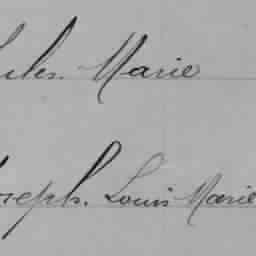 ules Marie
oseph. Louis Marie